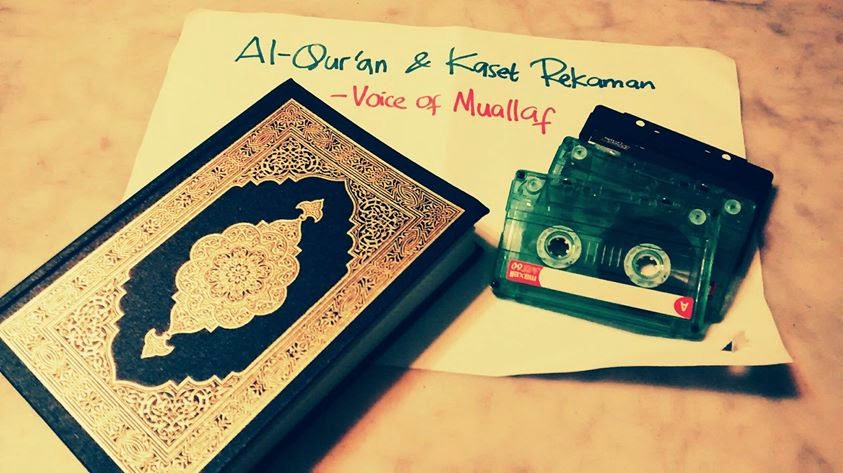 Al-Qur'an & Kaset Rekaman
-Voice of Muallaf
maxell
A